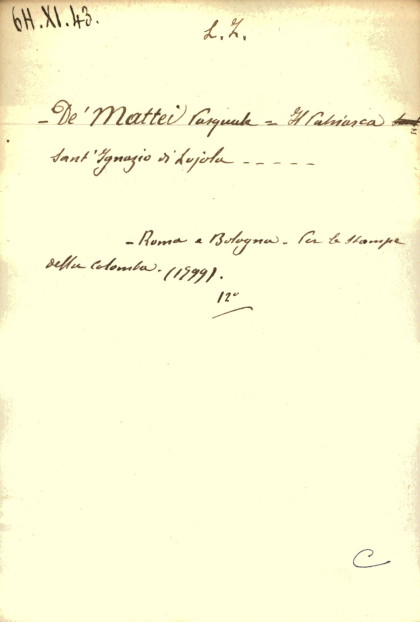 6H.XI.43.
L. Z.
- De' Mattei Pasquale = Il Patriarca
Sant' Ignazio di Lojola - - - - -
- Roma e Bologna - Per le stampe
della Colomba. (1799).
12°
C